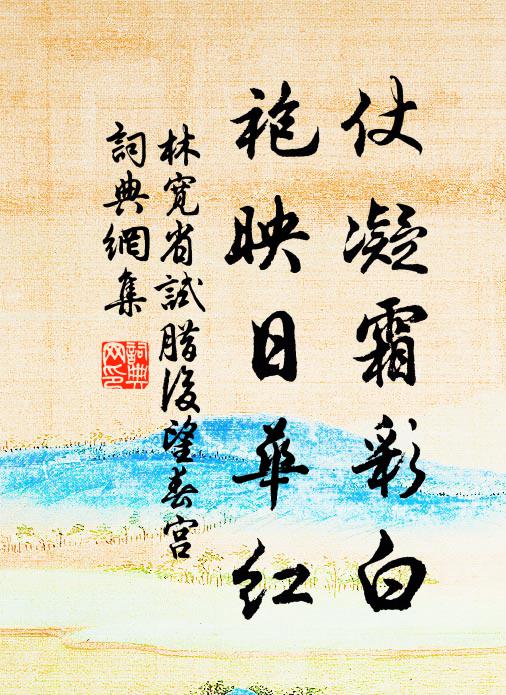 仗凝霜彩白
袍映日華红
林寬省試腊後望春宫
詞典網集
詞典
网印